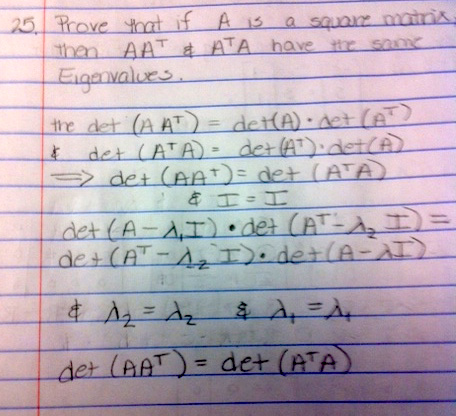 25. Prove that if A is a square matrix,
then AAᵀ & AᵀA have the same
Eigenvalues.
the det (AAᵀ) = det(A) · det(Aᵀ)
& det (AᵀA) = det(Aᵀ) · det(A)
⟹ det (AAᵀ) = det (AᵀA)
& I = I
det (A - λ₁I) · det (Aᵀ - λ₂ I) =
det (Aᵀ - λ₂ I) · det(A - λI)
& λ₂ = λ₂ & λ₁ = λ₁
det (AAᵀ) = det (AᵀA)